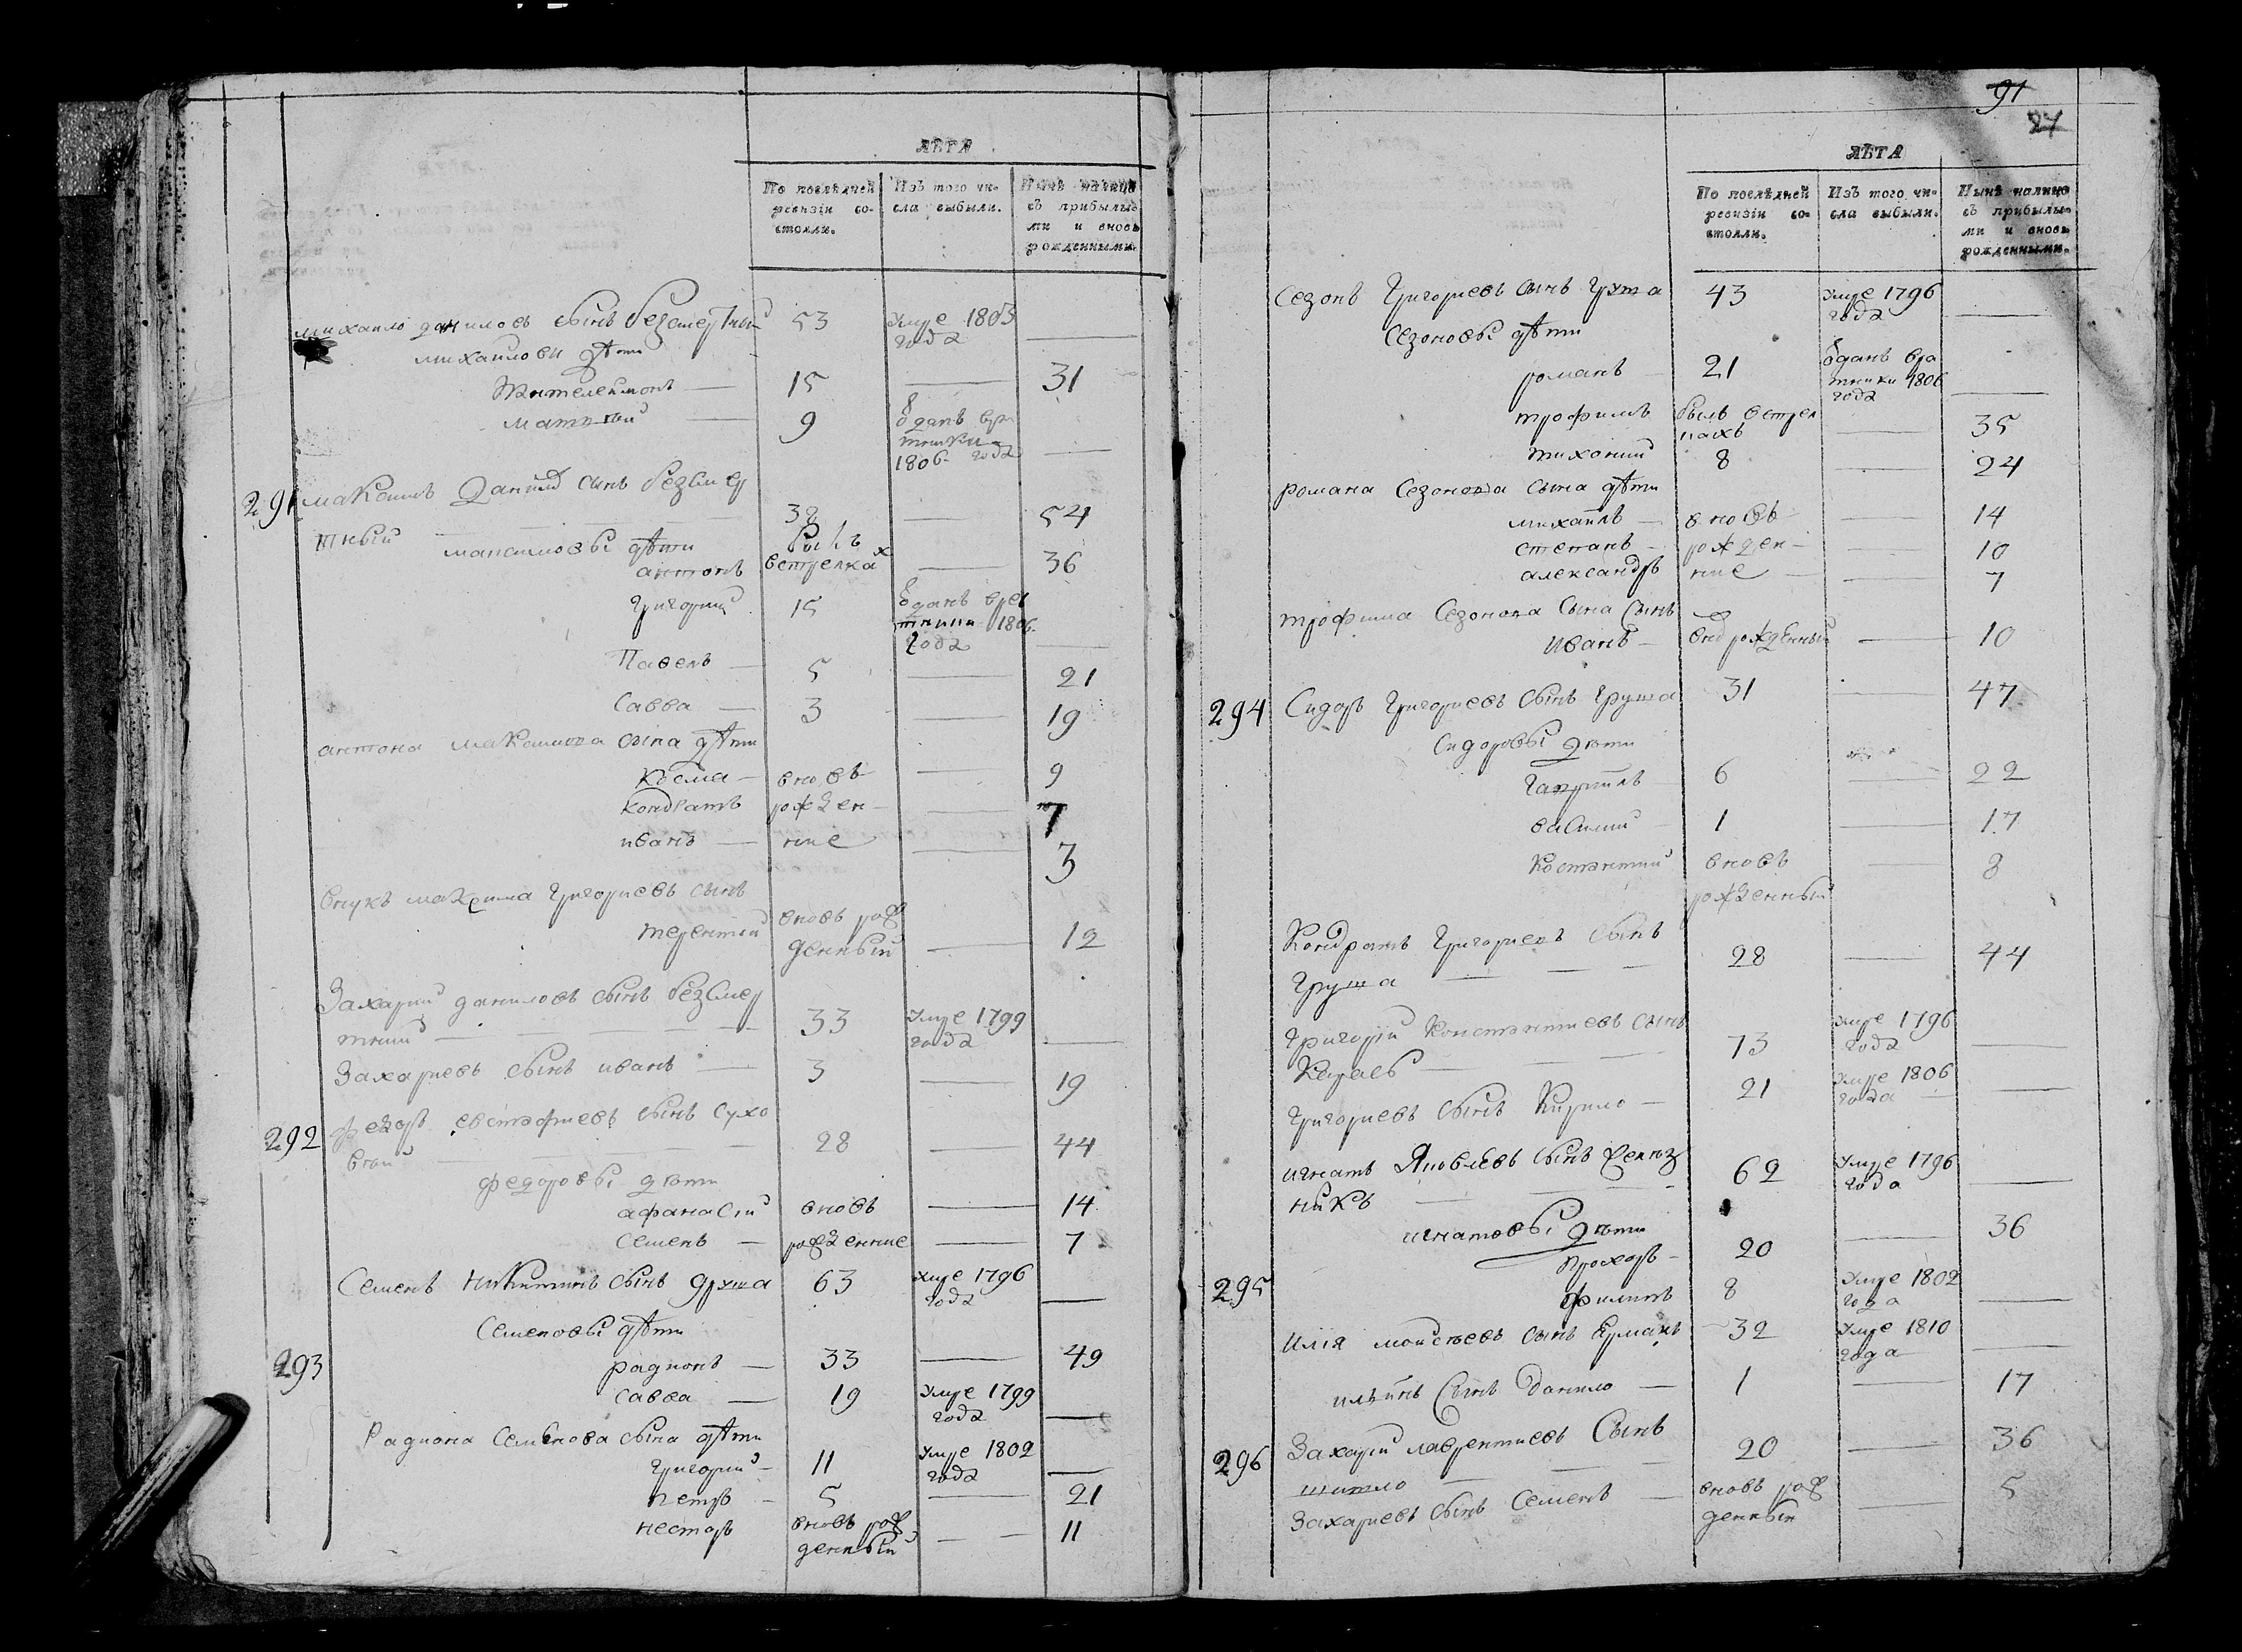 ЛѢТА
По послѣдней ревизіи со-стояли.
Изъ того чи-сла выбыли.
Нынѣ налицо съ прибылы-ми и вновь рожденными.
михаило даниловъ сынъ безсмертный 53 умре 1805 года
михаиловы дѣти
Пантелеймонъ 15 31
матвѣй 9 одданъ вра тники 1806 года
291 максимъ данилов сынъ безсмер
тный 38 54
максимовы дѣти
антонъ былъ встрелках 36
григорий 15 одданъ врат тники 1806 года
Павелъ 5 21
Савва 3 19
антона максимова сына дѣти
Косма вновь 9
Кондратъ рожден 7
иванъ ние 3
внукъ максима григориевъ сынъ
терентий вновь рож денный 12
Захарий даниловъ сынъ безсмер
тний 33 умре 1799 года
Захариевъ сынъ иванъ 3 19
292 федоръ евстафиевъ сынъ сухо
вѣй 28 44
федоровы дѣти
афанасий вновь 14
семенъ рожденние 7
Семенъ никитинъ сынъ груша 63 умре 1796 года
семеновы дѣти
293 радионъ 33 49
савва 19 умре 1799 года
Радиона семенова сына дѣти
григорий 11 умре 1802 года
петръ 5 21
несторъ вновь рож денный 11
91
27
ЛѢТА
По послѣдней ревизіи со-стояли.
Изъ того чи-сла выбыли.
Нынѣ налицо съ прибылы-ми и вновь рожденными.
Сезонъ григориевъ сынъ груша 43 умре 1796 года
Сезоновы дѣти
романъ 21 одданъ вра тники 1806 года
трофимъ былъ встрел ках 35
тихоний 8 24
романа Сезонова сына дѣти
михаилъ вновь 14
степанъ рожден 10
александръ ние 7
трофима Сезонова сына сынъ
иванъ внорожденный 10
294 Сидоръ григориевъ сынъ груша 31 47
Сидоровы дѣти
гаврилъ 6 22
василий 1 17
Костантий вновь 8
рожденный
Кондратъ григориевъ сынъ
груша 28 44
григорій константиевъ сынъ
Карась 73 умре 1796 года
григориевъ сынъ Кирило 21 умре 1806 года
игнатъ Яковлевъ сынъ
никъ 62 умре 1796 года
игнатовы дѣти
295 прохоръ 20 36
филипъ 8 умре 1802 года
илія моисѣевъ сынъ Ермакъ 32 умре 1810 года
ильинъ сынъ данило 1 17
296 Захарій лаврентиевъ сынъ
шитло 20 36
Захариевъ сынъ семенъ вновь рож денный 5